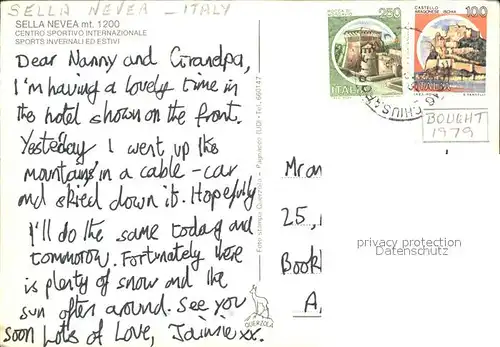 SELLA NEVEA - ITALY
SELLA NEVEA mt. 1200
CENTRO SPORTIVO INTERNAZIONALE
SPORTS INVERNALI ED ESTIVI
Dear Nanny and Grandpa,
I'm having a lovely time in
the hotel shown on the front.
Yesterday I went up the
mountains in a cable-car
and skied down it. Hopefully
I'll do the same today and
tommorow. Fortunately there
is plenty of snow and the
sun often around. See you
soon Lots of Love, Jaimie xx.
Foto stampa Querzola - Pagnacco (UD) - Tel. 660147
QUERZOLA
250
ITALIA
CASTELLO
ARAGONESE ISCHIA
100
ITALIA
CHIUSAFO
BOUGHT
1979
Mr an
25,
Book
A
privacy protection
Datenschutz